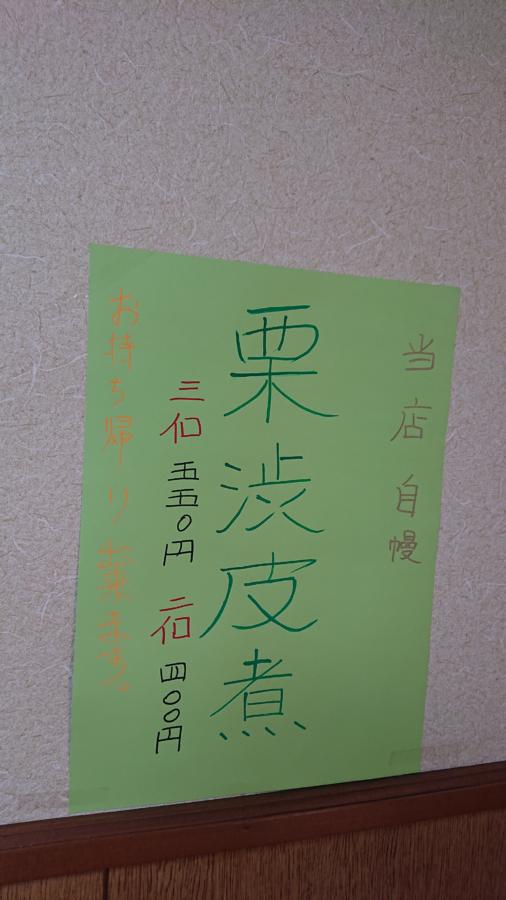 当店自幔
栗渋皮煮
三ケ 五五〇円 二ケ 四〇〇円
お持ち帰り出来ます。